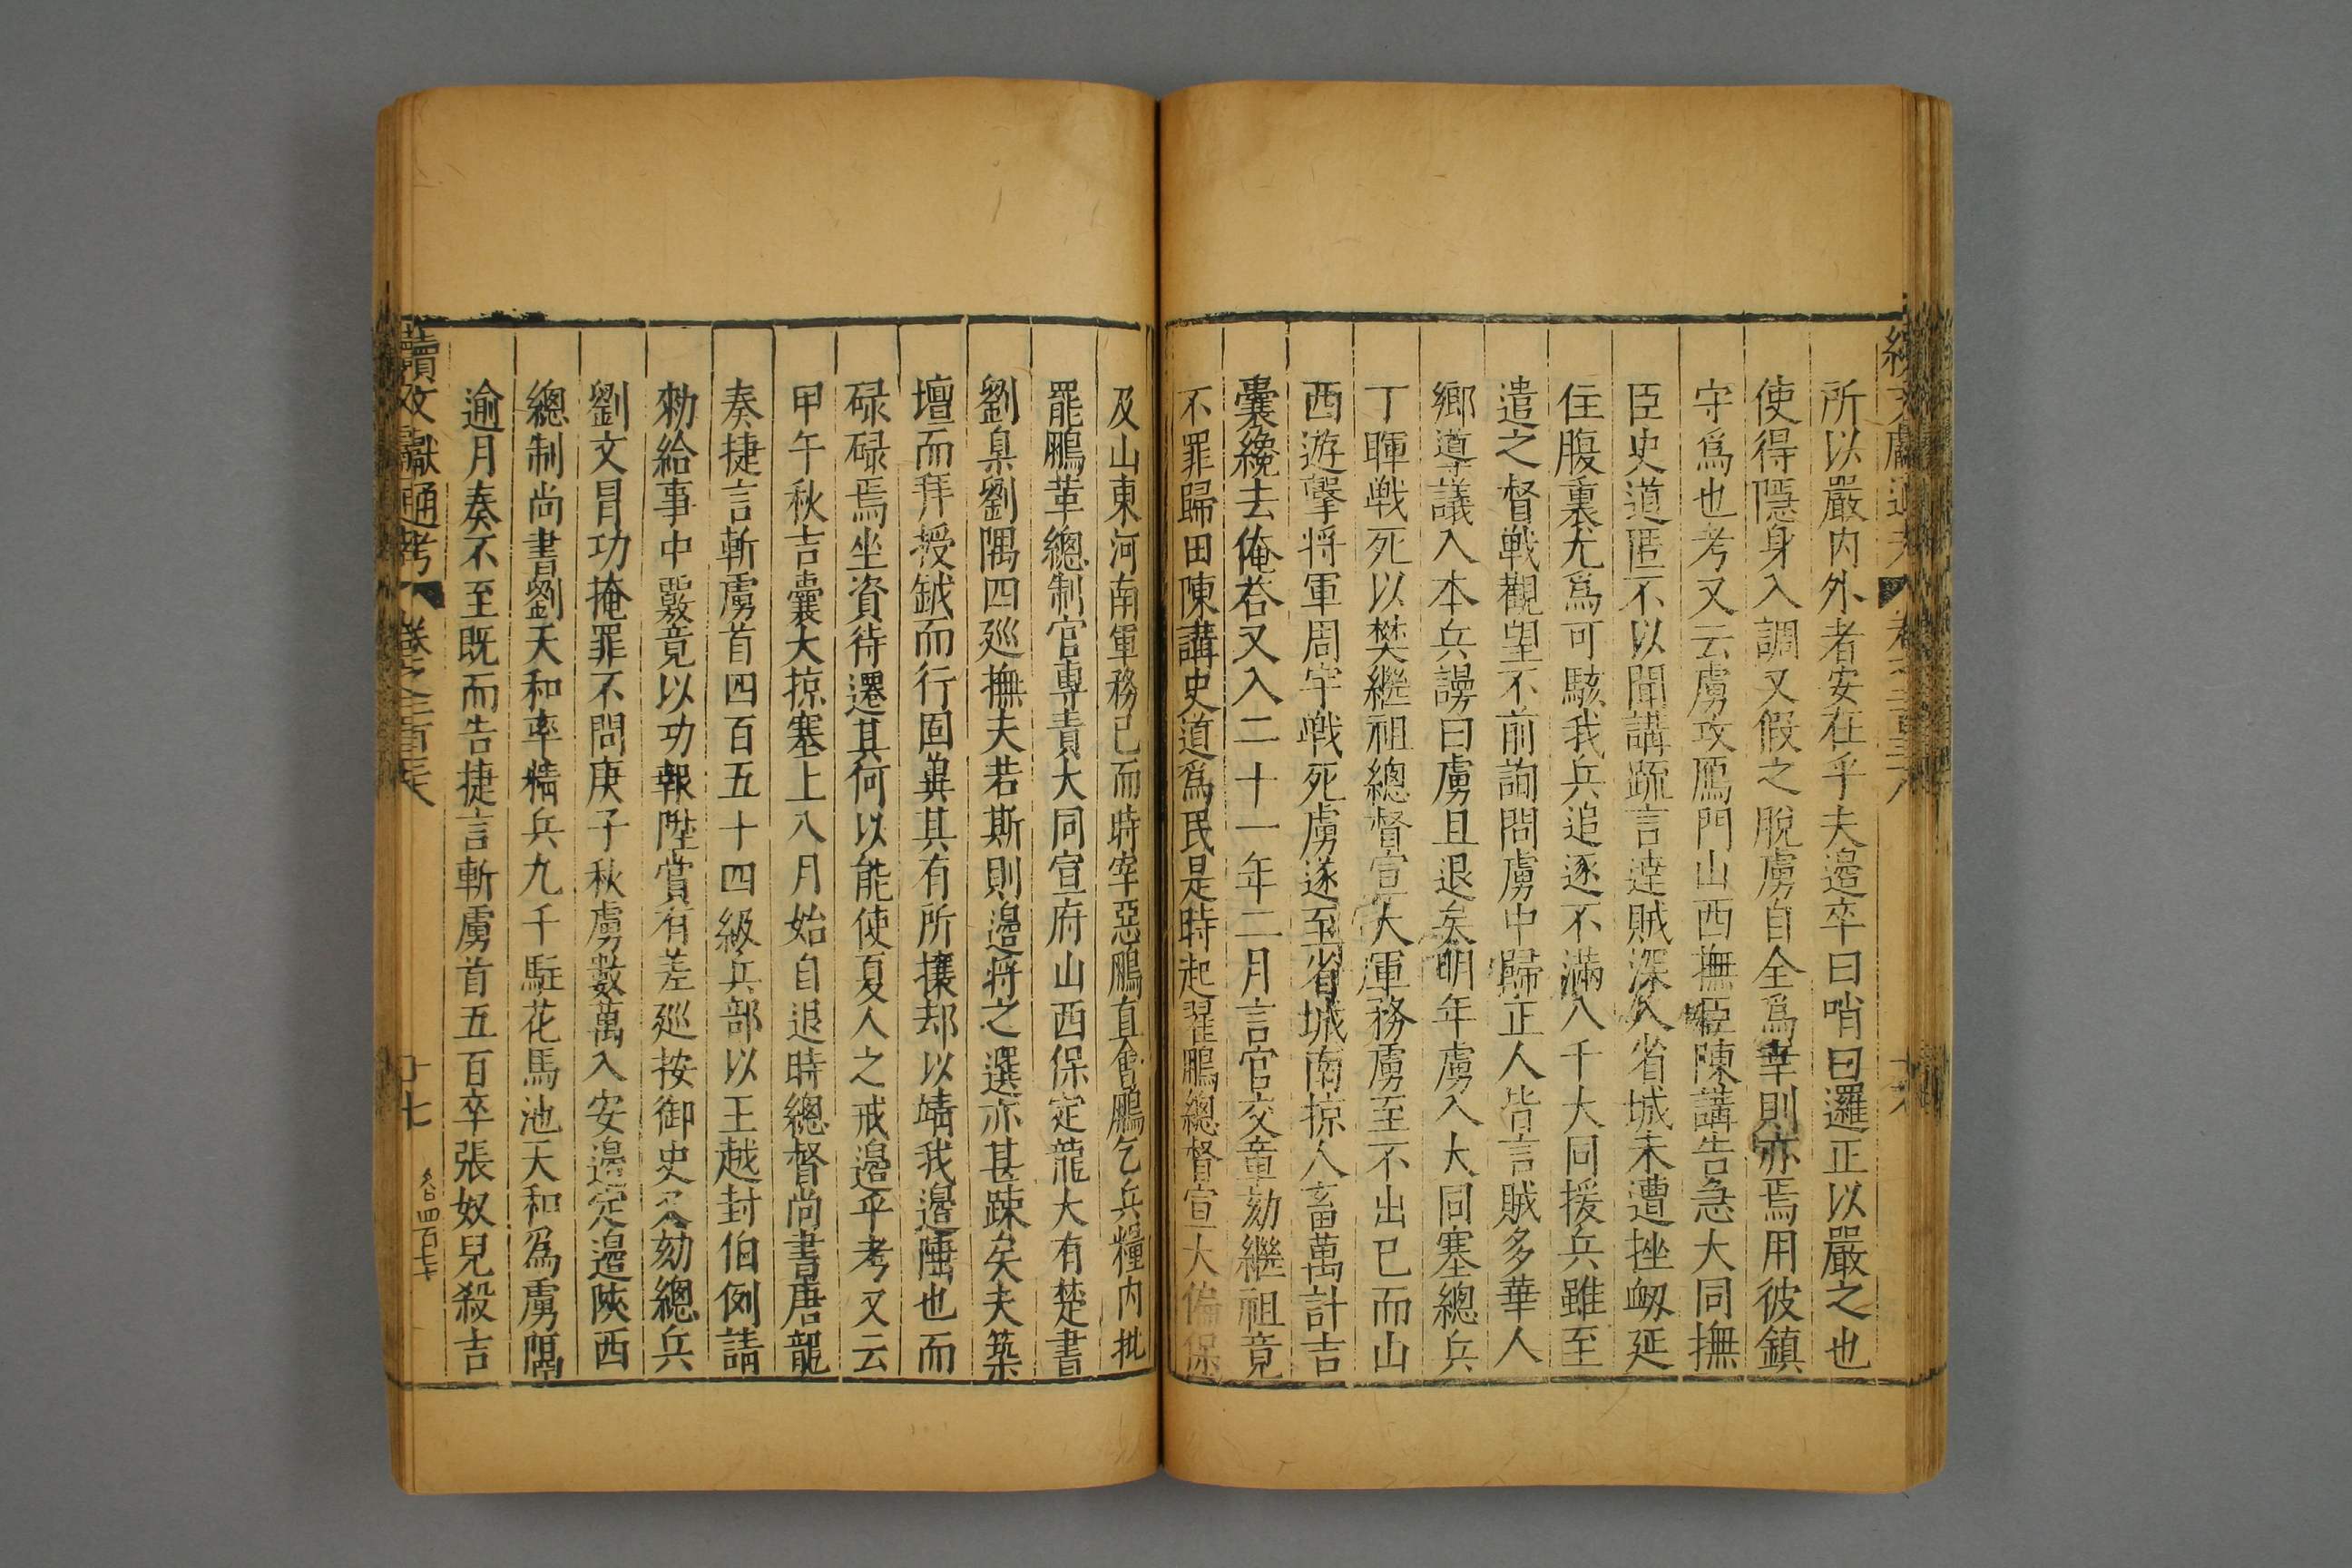 所以嚴内外者安在乎夫邉卒曰哨曰邏正以嚴之也
使得隱身入調又假之脫虜自全爲幸則亦焉用彼鎮
守爲也考又云虜攻鴈門山西撫臣陳講告急大同撫
臣史道匿不以聞講疏言達賊深入省城未遭挫衂延
住腹裏尤爲可駭我兵追逐不滿八千大同援兵雖至
遣之督戰觀望不前詢問虜中歸正人皆言賊多華人
鄉導議入本兵謾曰虜且退矣明年虜入大同塞總兵
丁暉戰死以樊繼祖總督宣大軍務虜至不出已而山
西遊擊将軍周宇戰死虜遂至省城南掠人畜萬計吉
囊纔去俺荅又入二十一年二月言官交章劾繼祖竟
不罪歸田陳講史道爲民是時起翟鵬總督宣大偏保
及山東河南軍務已而時宰惡鵬直會鵬乞兵糧内批
罷鵬革總制官專責大同宣府山西保定龍大有楚書
劉臬劉隅四廵撫夫若斯則邉将之選亦甚踈矣夫築
壇而拜授鉞而行固兾其有所攘却以靖我邉陲也而
碌碌焉坐資待遷其何以能使夏人之戒邉乎考又云
甲午秋吉囊大掠塞上八月始自退時總督尚書唐龍
奏捷言斬虜首四百五十四級兵部以王越封伯例請
勑給事中覈竟以功報陞賞有差廵按御史又劾總兵
劉文冒功掩罪不問庚子秋虜數萬入安邉定邉陝西
總制尚書劉天和率精兵九千駐花馬池天和爲虜隔
逾月奏不至既而告捷言斬虜首五百卒張奴兒殺吉
續文獻通考
十七